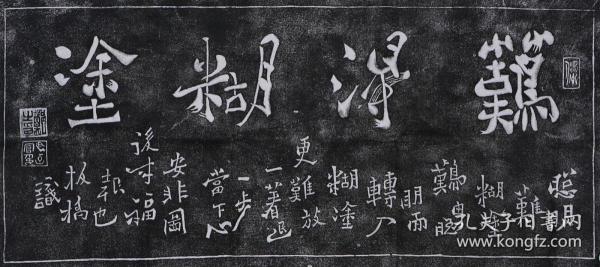 難得糊塗
聰明
難
糊塗
難由聰
明而
轉入
糊塗
更難放
一著退
一步
當下心
安非圖
後來福
報也
板橋
識
孔夫子旧书网
www.kongfz.com